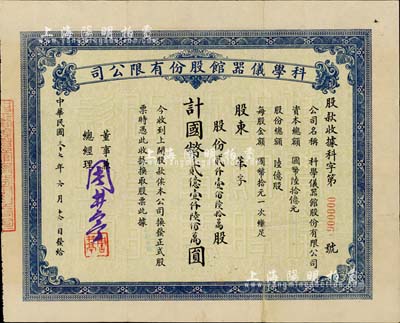 上海陽明拍賣
科學儀器館股份有限公司
股款收據科字第 000006 號
公司名稱 科學儀器館股份有限公司
資本總額 國幣陸拾億元
股份總額 陸億股
每股金額 國幣拾元一次繳足
股東
股份 股
計國幣 圓
今收到上開股款俟本公司換發正式股
票時憑此收據換取股票此據
董事長
總經理
中華民國三十七年六月 日發給
上海陽明拍賣